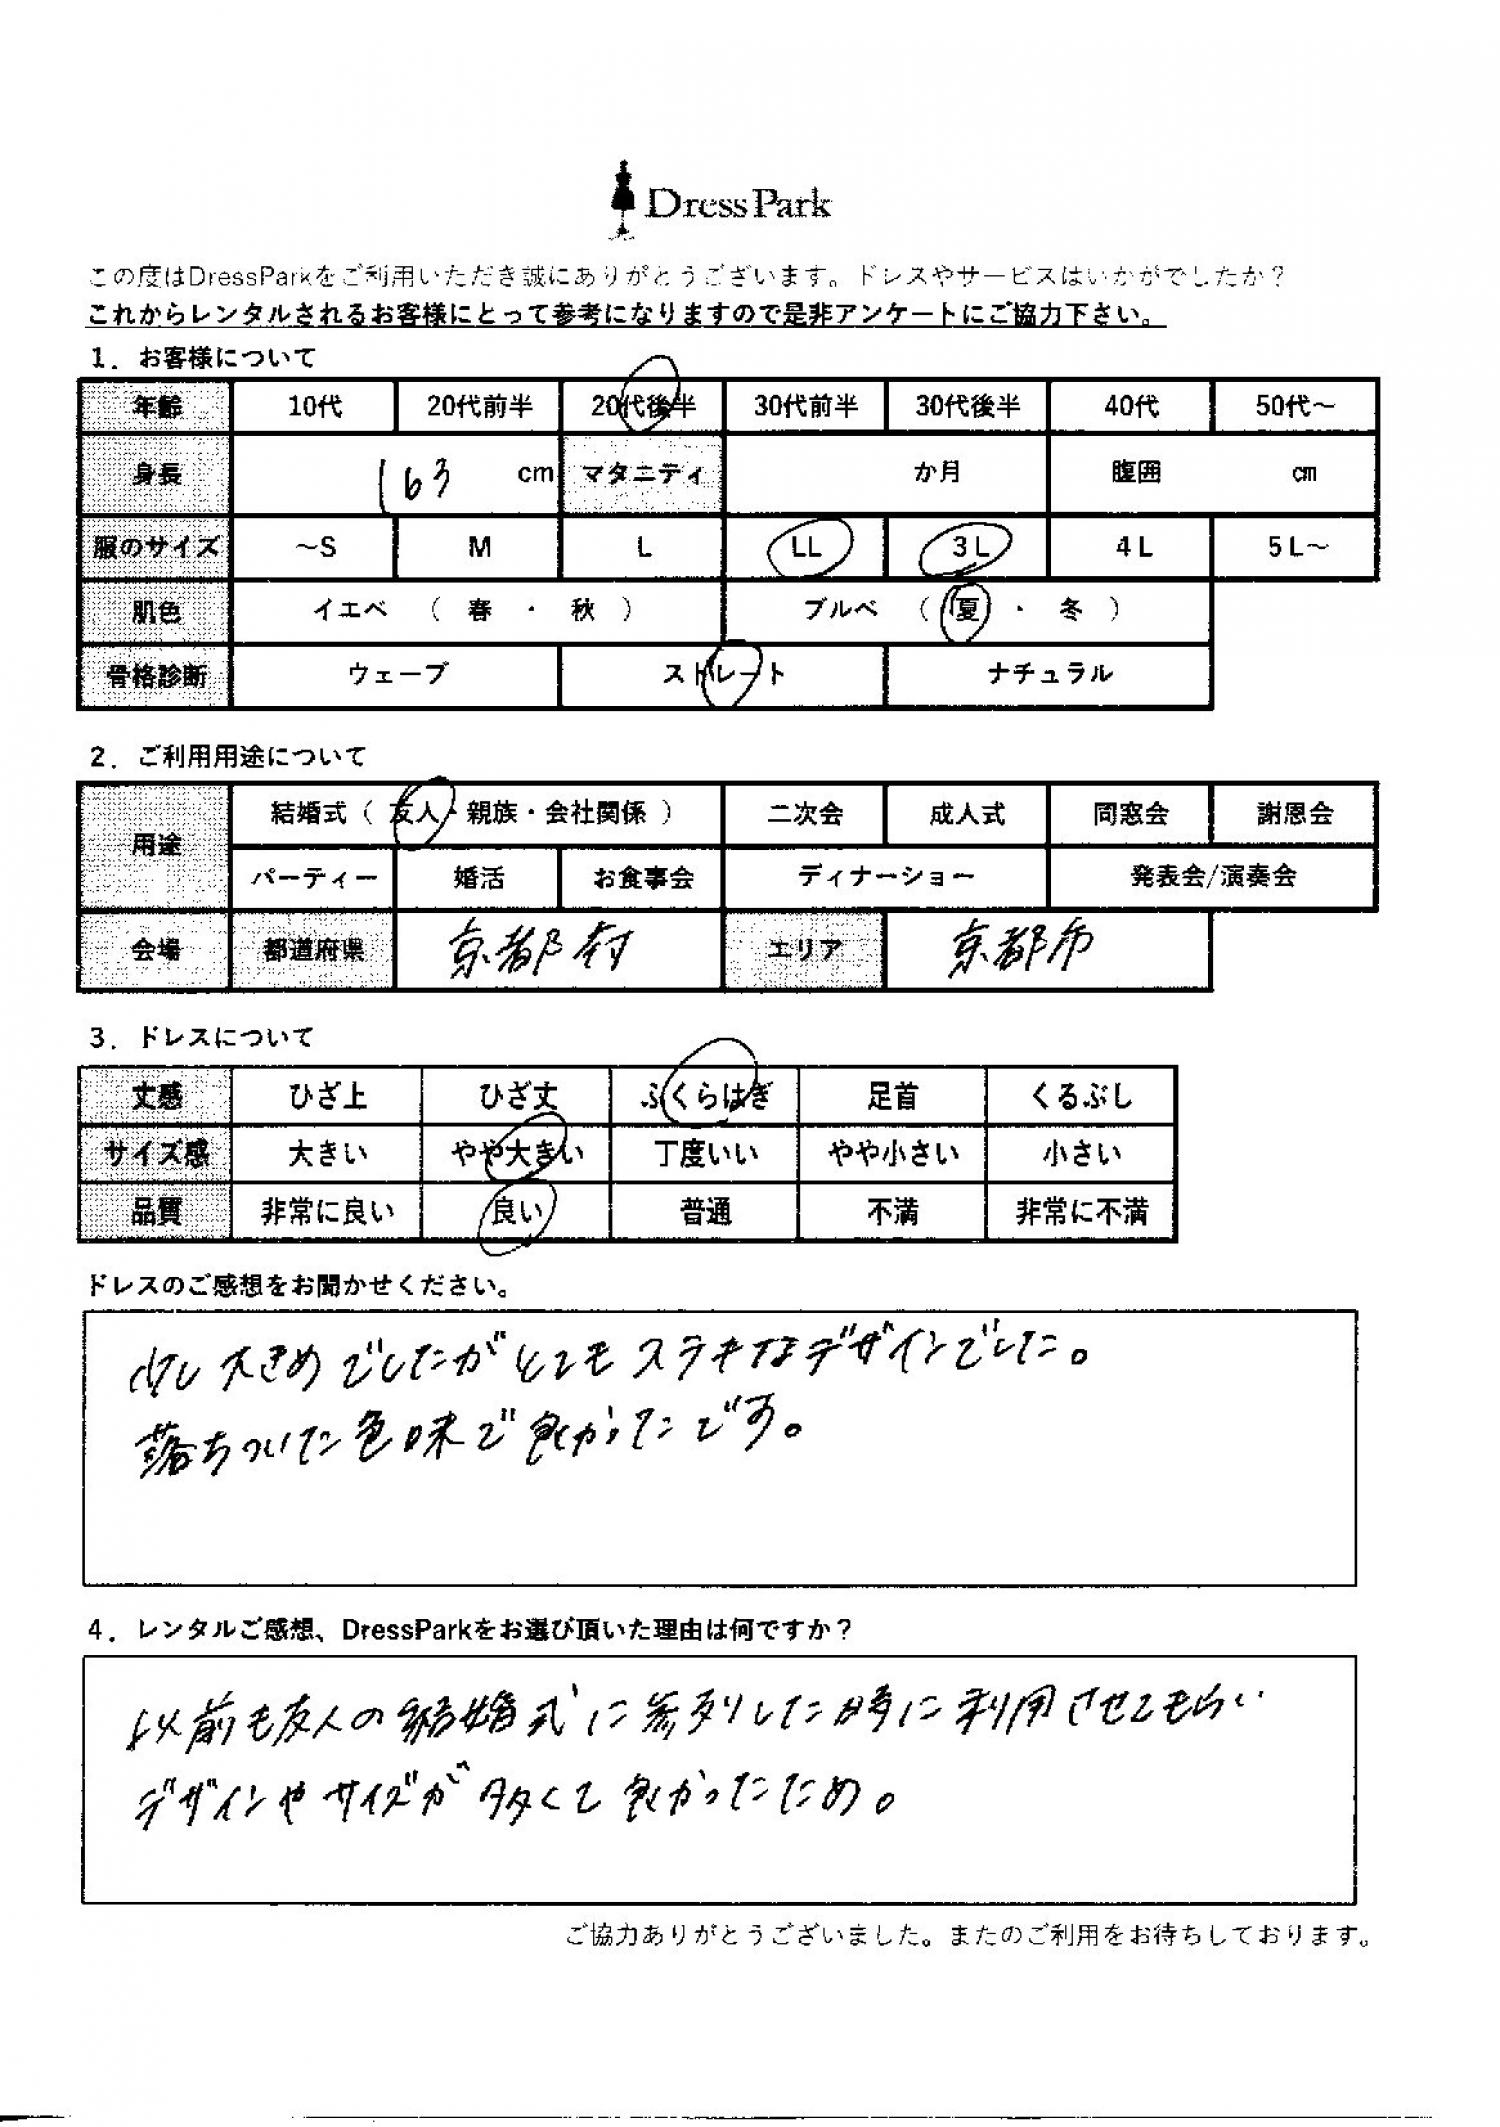 DressPark
この度はDressParkをご利用いただき誠にありがとうございます。ドレスやサービスはいかがでしたか？
これからレンタルされるお客様にとって参考になりますので是非アンケートにご協力下さい。
1．お客様について
年齢 10代 20代前半 20代後半 30代前半 30代後半 40代 50代～
身長 163 cm マタニティ か月 腹囲 cm
服のサイズ ～S M L LL 3L 4L 5L～
肌色 イエベ （ 春 ・ 秋 ） ブルベ （ 夏 ・ 冬 ）
骨格診断 ウェーブ ストレート ナチュラル
2．ご利用用途について
用途 結婚式（ 友人・親族・会社関係 ） 二次会 成人式 同窓会 謝恩会
パーティー 婚活 お食事会 ディナーショー 発表会/演奏会
会場 都道府県 京都府 エリア 京都市
3．ドレスについて
丈感 ひざ上 ひざ丈 ふくらはぎ 足首 くるぶし
サイズ感 大きい やや大きい 丁度いい やや小さい 小さい
品質 非常に良い 良い 普通 不満 非常に不満
ドレスのご感想をお聞かせください。
少し大きめでしたがとてもステキなデザインでした。
落ちついた色味で良かったです。
4．レンタルご感想、DressParkをお選び頂いた理由は何ですか？
以前も友人の結婚式に参列した時に利用させてもらい
デザインやサイズが多くて良かったため。
ご協力ありがとうございました。またのご利用をお待ちしております。